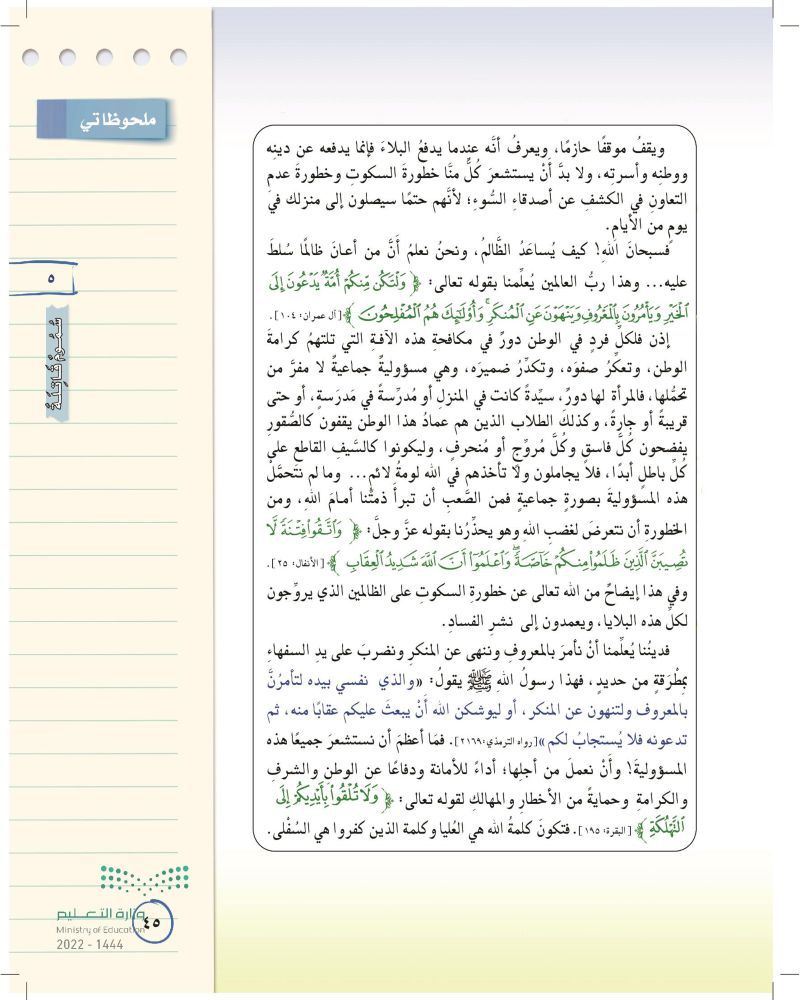 ملحوظاتي
ويقفُ موقفًا حازمًا، ويعرفُ أنَّه عندما يدفعُ البلاءَ فإنما يدفعه عن دينِه
ووطنِه وأسرتِه، ولا بدَّ أنْ يستشعرَ كُلٌّ منَّا خطورةَ السكوتِ وخطورةَ عدمِ
التعاونِ في الكشفِ عن أصدقاءِ السُّوءِ؛ لأنَّهم حتمًا سيصلون إلى منزلك في
يومٍ من الأيام.
فسبحانَ اللهِ! كيف يُساعَدُ الظَّالمُ، ونحنُ نعلمُ أنَّ من أعانَ ظالمًا سُلطَ
عليه... وهذا ربُّ العالمين يُعلِّمنا بقوله تعالى: ﴿ وَلْتَكُن مِّنكُمْ أُمَّةٌ يَدْعُونَ إِلَى
الْخَيْرِ وَيَأْمُرُونَ بِالْمَعْرُوفِ وَيَنْهَوْنَ عَنِ الْمُنكَرِ ۚ وَأُوْلَٰٓئِكَ هُمُ الْمُفْلِحُونَ ﴾[آل عمران: ١٠٤].
إذن فلكلِّ فردٍ في الوطنِ دورٌ في مكافحةِ هذه الآفةِ التي تلتهمُ كرامةَ
الوطن، وتعكرُ صفوَه، وتكدِّرُ ضميرَه، وهي مسؤوليةٌ جماعيةٌ لا مفرَّ من
تحمُّلها، فالمرأة لها دورٌ، سيِّدةً كانت في المنزلِ أو مُدرِّسةً في مَدرَسةٍ، أو حتى
قريبةً أو جارةً، وكذلكَ الطلاب الذين هم عمادُ هذا الوطن يقفون كالصُّقورِ
يفضحون كُلَّ فاسقٍ وكُلَّ مُروِّجٍ أو مُنحرفٍ، وليكونوا كالسَّيفِ القاطعِ على
كُلِّ باطلٍ أبدًا، فلا يجاملون ولا تأخذهم في الله لومةُ لائم... وما لم نتَحمَّلْ
هذه المسؤوليةَ بصورةٍ جماعيةٍ فمن الصَّعبِ أن تبرأَ ذمَّتُنا أمامَ اللهِ، ومن
الخطورةِ أن نتعرضَ لغضبِ اللهِ وهو يحذِّرُنا بقوله عزَّ وجلَّ: ﴿ وَاتَّقُوا فِتْنَةً لَّا
تُصِيبَنَّ الَّذِينَ ظَلَمُوا مِنكُمْ خَاصَّةً ۖ وَاعْلَمُوٓا أَنَّ اللَّهَ شَدِيدُ الْعِقَابِ ﴾[الأنفال: ٢٥].
وفي هذا إيضاحٌ من الله تعالى عن خطورةِ السكوتِ على الظالمين الذي يروِّجون
لكلِّ هذه البلايا، ويعمدون إلى نشرِ الفسادِ.
فديننُا يُعلِّمنا أنْ نأمرَ بالمعروفِ وننهى عن المنكرِ ونضربَ على يدِ السفهاءِ
بمِطْرَقةٍ من حديدٍ، فهذا رسولُ اللهِ ﷺ يقولُ: «والذي نفسي بيده لتأمرُنَّ
بالمعروف ولتنهون عن المنكر، أو ليوشكن الله أنْ يبعثَ عليكم عقابًا منه، ثم
تدعونه فلا يُستجابُ لكم»[رواه الترمذي: ٢١٦٩]. فمَا أعظمَ أن نستشعرَ جميعًا هذه
المسؤوليةَ! وأنْ نعملَ من أجلِها؛ أداءً للأمانة ودفاعًا عن الوطنِ والشرفِ
والكرامةِ وحمايةً من الأخطارِ والمهالكِ لقوله تعالى: ﴿ وَلَا تُلْقُوا بِأَيْدِيكُمْ إِلَى
التَّهْلُكَةِ ﴾[البقرة: ١٩٥]. فتكونَ كلمةُ الله هي العُليا وكلمة الذين كفروا هي السُفْلى.
٥
سُمُومٌ قَاتِلَةٌ
وزارة التعليم
Ministry of Education
2022 - 1444
٤٥